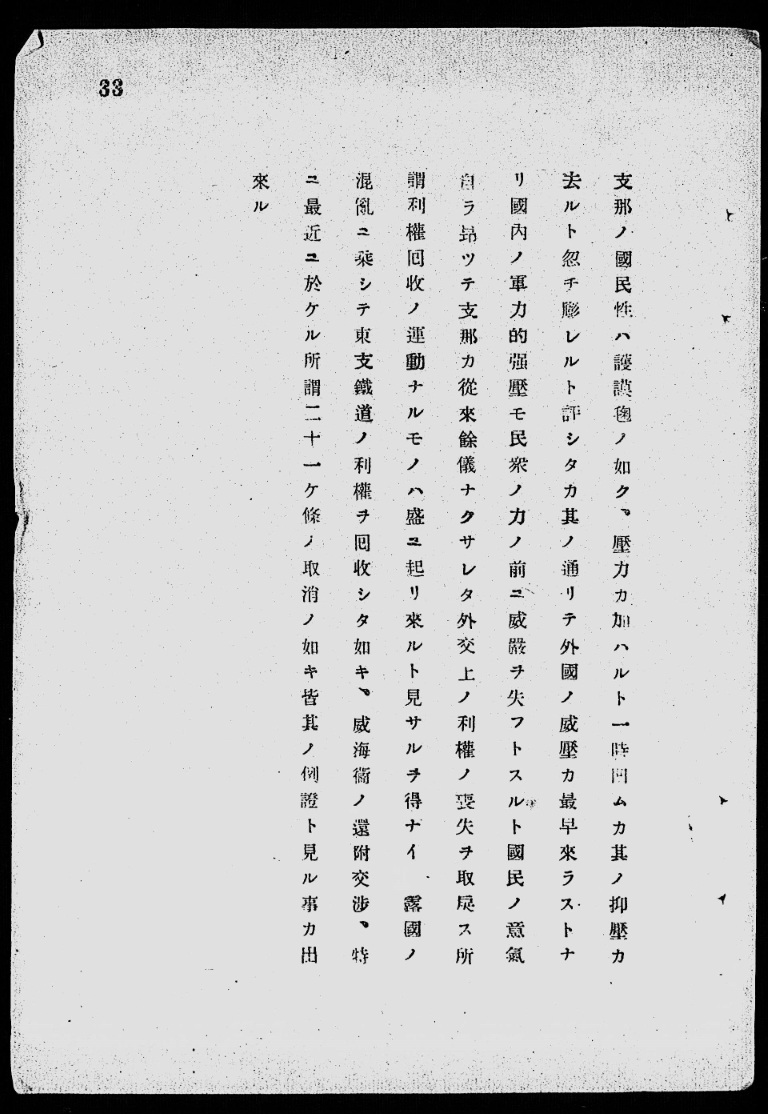 33
支那ノ國民性ハ護謨毬ノ如ク、壓力カ加ハルト一時凹ムカ其ノ抑壓カ
去ルト忽チ膨レルト評シタカ其ノ通リテ外國ノ威壓カ最早來ラストナ
リ國內ノ軍力的强壓モ民衆ノ力ノ前ニ威嚴ヲ失フトスルト國民ノ意氣
自ラ昂ツテ支那カ從來餘儀ナクサレタ外交上ノ利權ノ喪失ヲ取戾ス所
謂利權回收ノ運動ナルモノハ盛ニ起リ來ルト見サルヲ得ナイ 露國ノ
混亂ニ乘シテ東支鐵道ノ利權ヲ回收シタ如キ、威海衞ノ還附交涉、特
ニ最近ニ於ケル所謂二十一ケ條ノ取消ノ如キ皆其ノ例證ト見ル事カ出
來ル